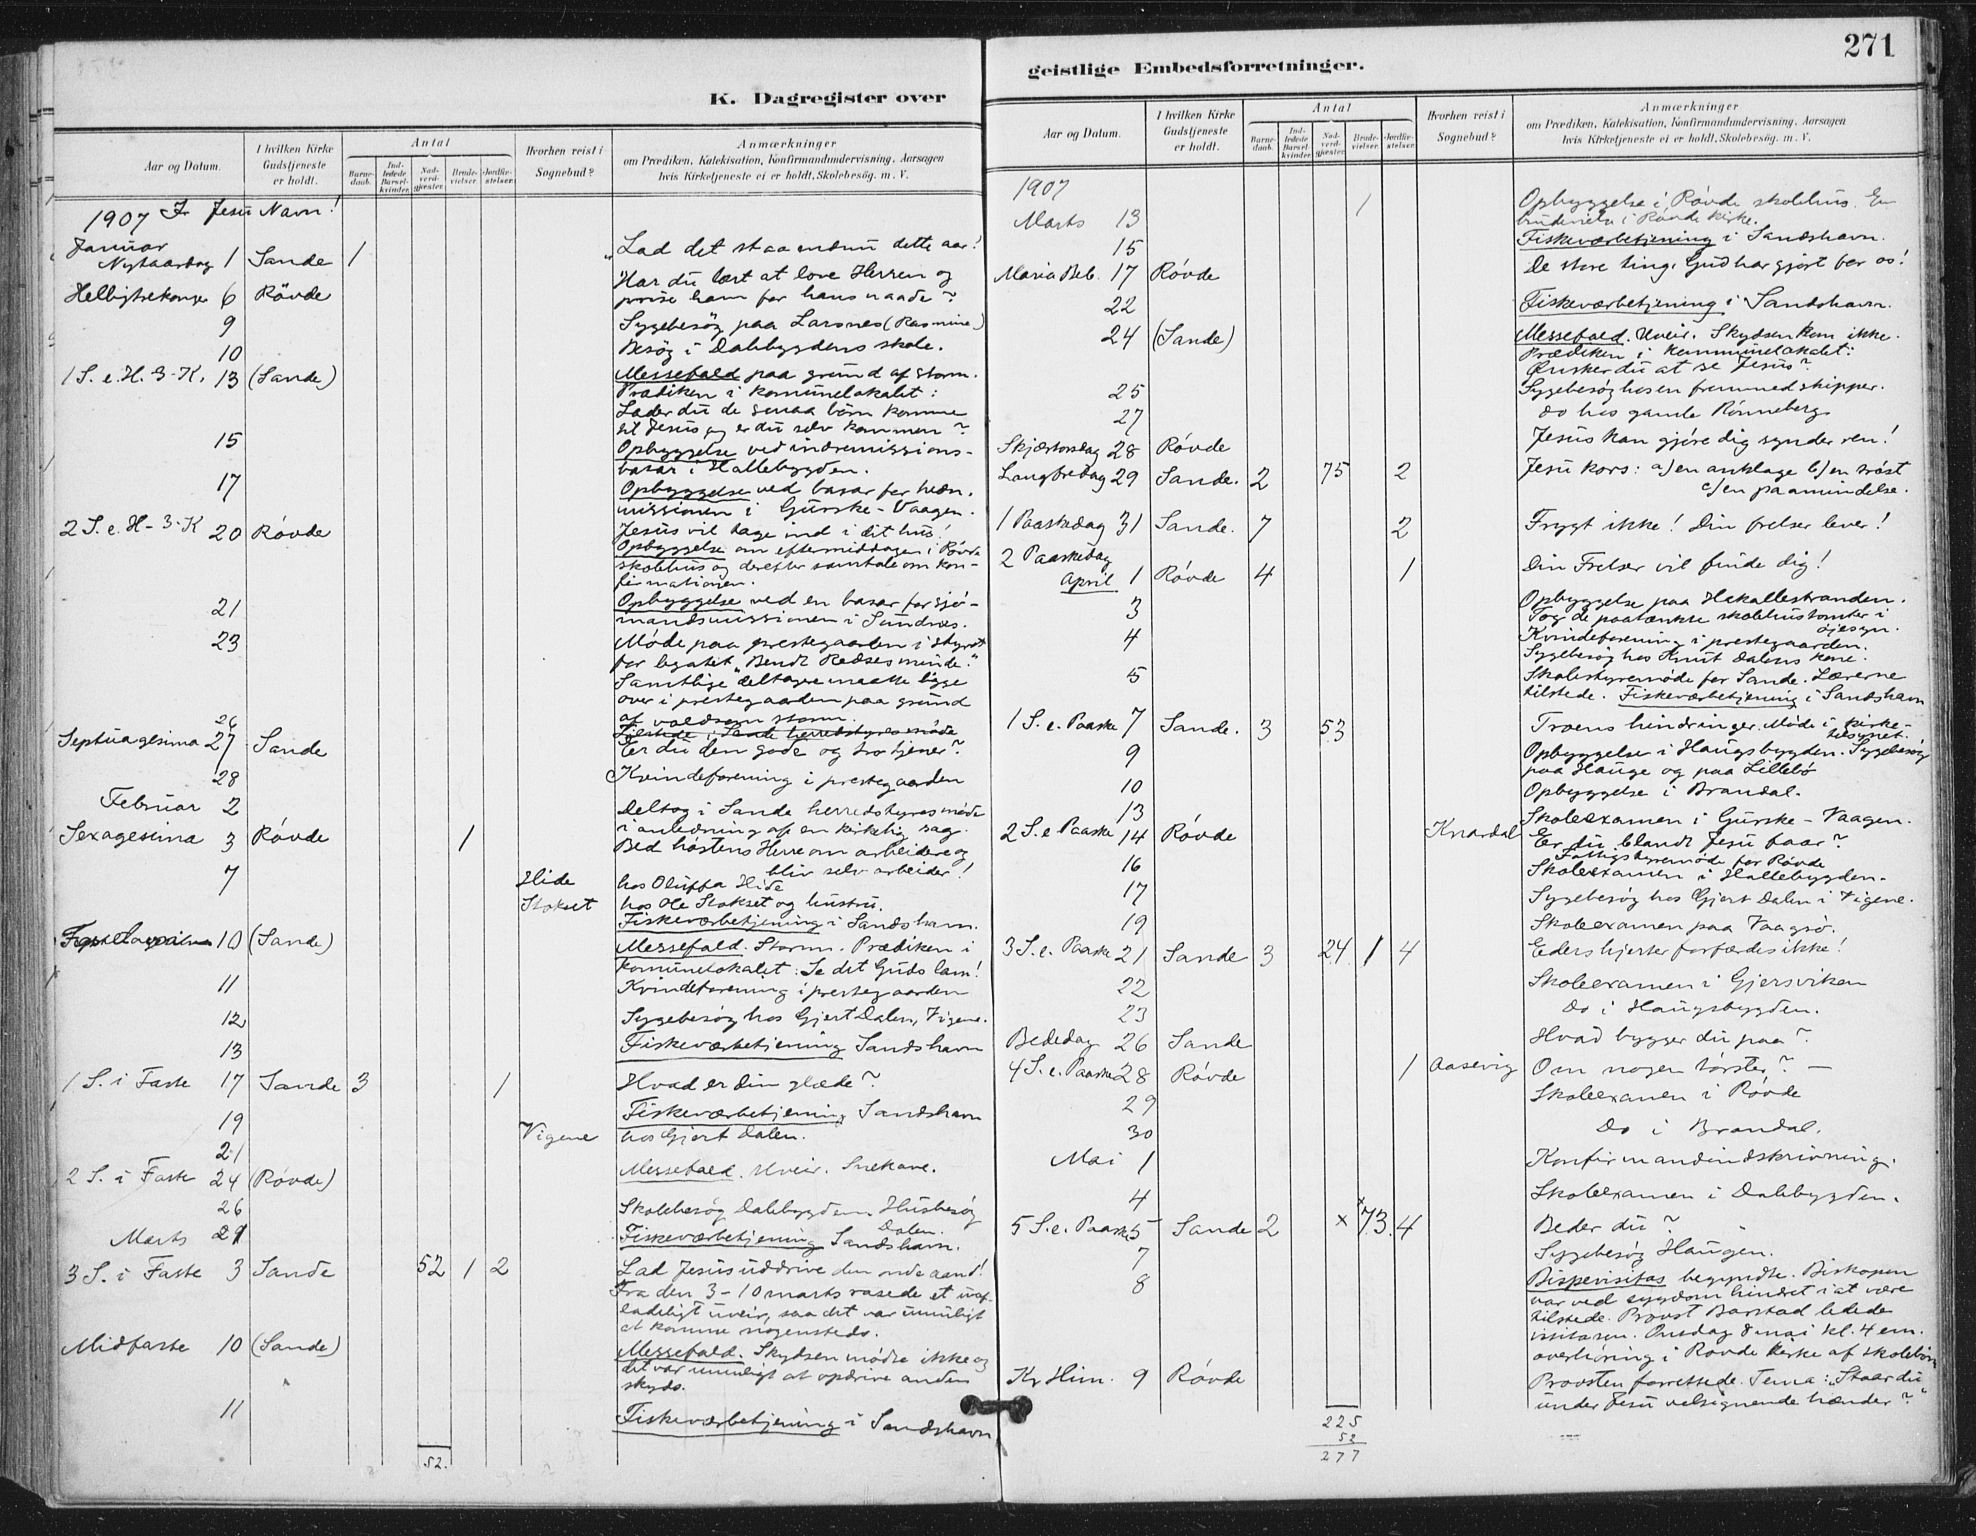 K. Dagregister over
Aar og Datum.
I hvilken Kirke Gudstjeneste er holdt.
Antal
Barnedaab.
Indledede Barselkvinder.
Nadverdgjæster.
Brudevielser.
Jordfæstelser.
Hvorhen reist i Sognebud?
Anmærkninger
om Prædiken, Katekisation, Konfirmandundervisning, Aarsagen
hvis Kirketjeneste ei er holdt, Skolebesøg. m. V.
1907 I Jesu Navn!
Januar
Nytaarsdag 1 Sande 1 "Lad det staa endnu dette aar!
Helligtrekonge 6 Røvde Har du lært at love Herren og
prise ham for hans naade?
9 Sygebesøg paa Larsnes (Rasmine)
10 Besøg i Dalebygdens skole.
1 S. e. H. 3-K. 13 (Sande) Messefald paa grund af storm.
Prædiken i komunelokalet:
Lader du de smaa børn komme
til Jesus og er du selv kommen?
15 Opbyggelse ved indremissions-
basar i Hallebygden.
17 Opbyggelse ved basar for hedn.
missionen i Gurske-Vaagen.
2 S. e. H-3-K 20 Røvde Jesus vil tage ind i dit hus!
Opbyggelse om eftermiddagen i Røvde
skolehus og derefter samtale om kon-
firmationen.
21 Opbyggelse ved en basar for sjø-
mandsmissionen i Sundnes.
23 Møde paa prestegaarden i styret
for legatet "Bendt Redses minde."
Samtlige deltagere maatte ligge
over i prestegaarden paa grund
af voldsom storm.
26 Tilstede i Sande herredstyresmøde
Septuagesima 27 Sande Er du den gode og tro tjener?
28 Kvindeforening i prestegaarden
Februar 2 Deltog i Sande herredstyresmøde
i anledning af en kirkelig sag.
Sexagesima 3 Røvde 1 Bed høstens Herre om arbeidere og
bliv selv arbeider!
7 Hide hos Oluffa Hide
Stokset hos Ole Stokset og hustru.
Fiskeværbetjening i Sandshavn.
10 (Sande) Messefald. Storm. Prædiken i
komunelokalet: Se det Guds lam!
11 Kvindeforening i prestegaarden
12 Sygebesøg hos Gjert Dalen, Vigene.
13 Fiskeværbetjening Sandshavn
1 S. i Faste 17 Sande 3 1 Hvad er din glæde?
19 Fiskeværbetjening Sandshavn
21 Vigene hos Gjert Dalen.
2 S. i Faste 24 (Røvde) Messefald. Uveir. Snekave.
26 Skolebesøg Dalebygden. Husbesøg
Dalen.
Marts 1 Fiskeværbetjening Sandshavn.
3 S. i Faste 3 Sande 52 1 2 Lad Jesus uddrive den onde aand!
Fra den 3-10 marts rasede et uaf-
ladeligt uveir, saa det var umuligt
at komme nogensteds.
Midfaste 10 (Sande) Messefald. Skydsen mødte ikke og
det var umuligt at opdrive anden
skyds.
11 Fiskeværbetjening i Sandshavn
52.
271
geistlige Embedsforretninger.
Aar og Datum.
I hvilken Kirke Gudstjeneste er holdt.
Antal
Barnedaab.
Indledede Barselkvinder.
Nadverdgjæster.
Brudevielser.
Jordfæstelser.
Hvorhen reist i Sognebud?
Anmærkninger
om Prædiken, Katekisation, Konfirmandundervisning, Aarsagen
hvis Kirketjeneste ei er holdt, Skolebesøg. m. V.
1907
Marts 13 1 Opbyggelse i Røvde skolehus. En
brudevielse i Røvde kirke.
15 Fiskeværbetjening i Sandshavn.
Maria Beb. 17 Røvde De store ting, Gud har gjort for os!
22 Fiskeværbetjening i Sandshavn.
24 (Sande) Messefald. Uveir. Skydsen kom ikke.
Prædiken i kommunelokalet:
Ønsker du at se Jesus?
25 Sygebesøg hos en fremmed skipper.
27 do hos gamle Rønneberg
Skjærtorsdag 28 Røvde Jesus kan gjøre dig synder ren!
Langfredag 29 Sande. 2 75 2 Jesu kors: a) en anklage b) en trøst
c) en paamindelse.
1 Paaskedag 31 Sande. 7 2 Frygt ikke! Din frelser lever!
2 Paaskedag
April 1 Røvde 4 1 Din Frelser vil finde dig!
3 Opbyggelse paa Hakallestranden.
Tog de paatænkte skolehustomter i
øjesyn.
4 Kvindeforening i prestegaarden.
Sygebesøg hos Knut Dalens kone.
5 Skolestyremøde for Sande. Lærerne
tilstede. Fiskeværbetjening i Sandshavn
1 S. e. Paaske 7 Sande. 3 53 Troens hindringer. Møde i kirke-
tilsynet.
9 Opbyggelse i Haugsbygden. Sygebesøg
paa Hauge og paa Lillebø
10 Opbyggelse i Brandal.
13 Skoleexamen i Gurske-Vaagen.
2 S. e Paaske 14 Røvde Knardal Er du blandt Jesu faar?
Fattigstyremøde for Røvde
16 Skoleexamen i Hallebygden.
17 Sygebesøg hos Gjert Dalen i Vigene.
19 Skoleexamen paa Vaagsø.
3 S. e. Paaske 21 Sande 3 24 1 4 Eders hjerter forfærdes ikke!
22 Skoleexamen i Gjersviken
23 Do i Haugsbygden.
Bededag 26 Sande Hvad bygger du paa?
4 S. e. Paaske 28 Røvde 1 Aasevig Om nogen tørster? —
29 Skoleexamen i Røvde
30 Do i Brandal.
Mai 1 Konfirmandindskrivning.
4 Skoleexamen i Dalebygden.
5 S. e. Paaske 5 Sande 2 x x 73 4 Beder du?
7 Sygebesøg Haugen.
8 Bispevisitas begyndte. Biskopen
var ved sygdom hindret i at være
tilstede. Provst Barstad ledede
visitasen. Onsdag 8 mai kl. 4 em.
overhøring i Røvde kirke af skolebørn
Kr Him. 9 Røvde Provsten forrettede. Tema: "Staar du
under Jesu velsignende hænder?"
225
52
277